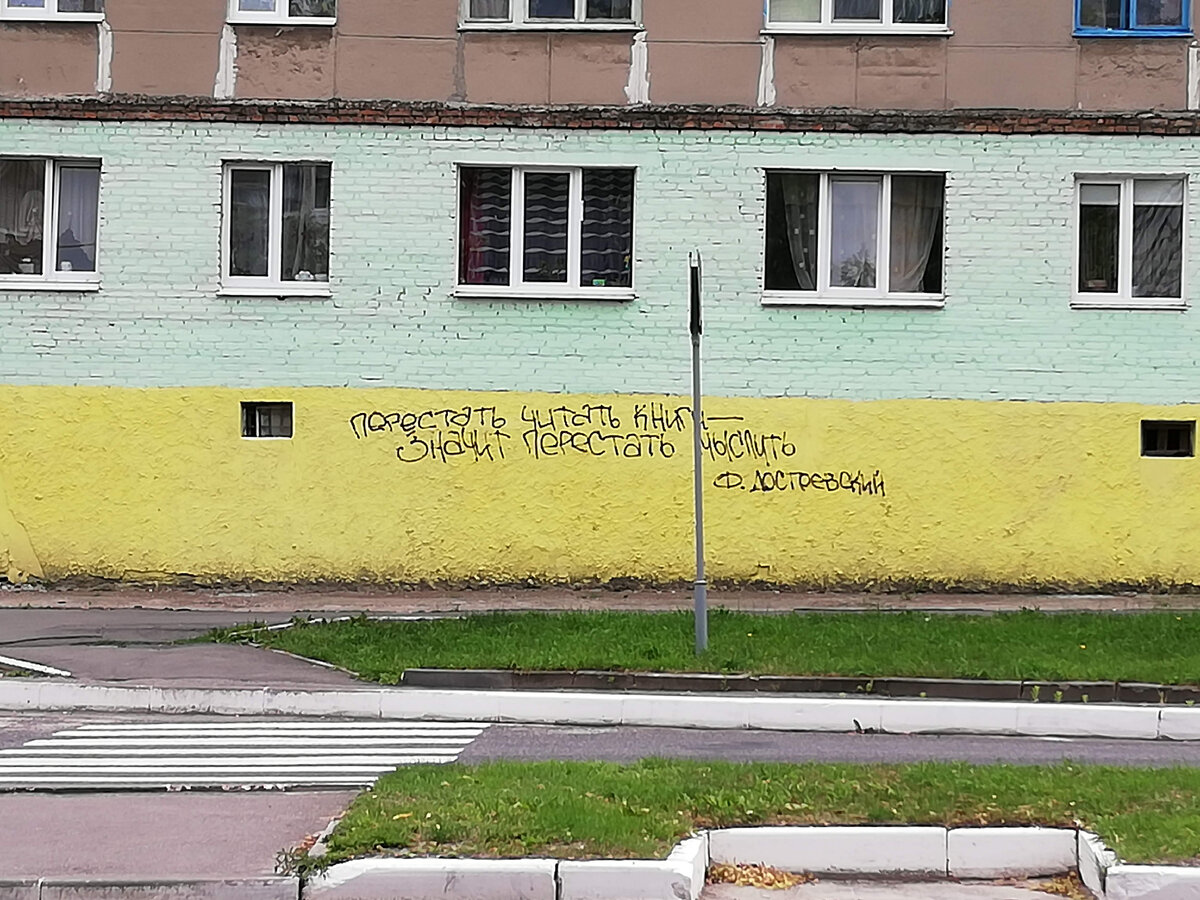 перестать читать книги—
значит перестать мыслить
Ф. Достоевский